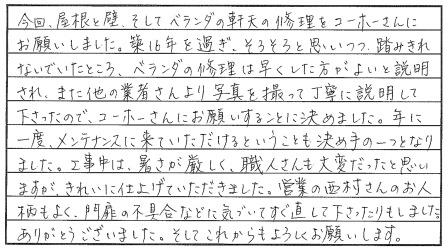 今回、屋根と壁、そしてベランダの軒天の修理をコーホーさんに
お願いしました。築16年を過ぎ、そろそろと思いつつ、踏みきれ
ないでいたところ、ベランダの修理は早くした方がよいと説明
され、また他の業者さんより写真を撮って丁寧に説明して
下さったので、コーホーさんにお願いすることに決めました。年に
一度、メンテナンスに来ていただけるということも決め手の一つとなり
ました。工事中は、暑さが厳しく、職人さんも大変だったと思い
ますが、きれいに仕上げていただきました。営業の西村さんのお人
柄もよく、門扉の不具合などに気づいてすぐ直して下さったりもしました
ありがとうございました。そしてこれからもよろしくお願いします。